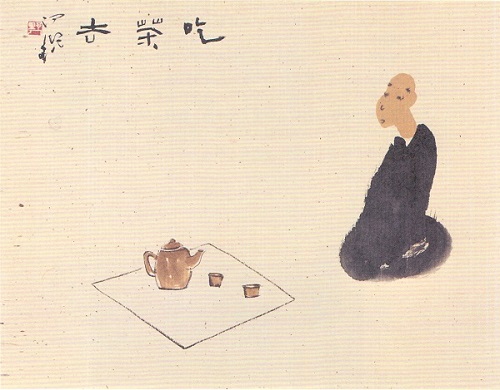 吃茶去